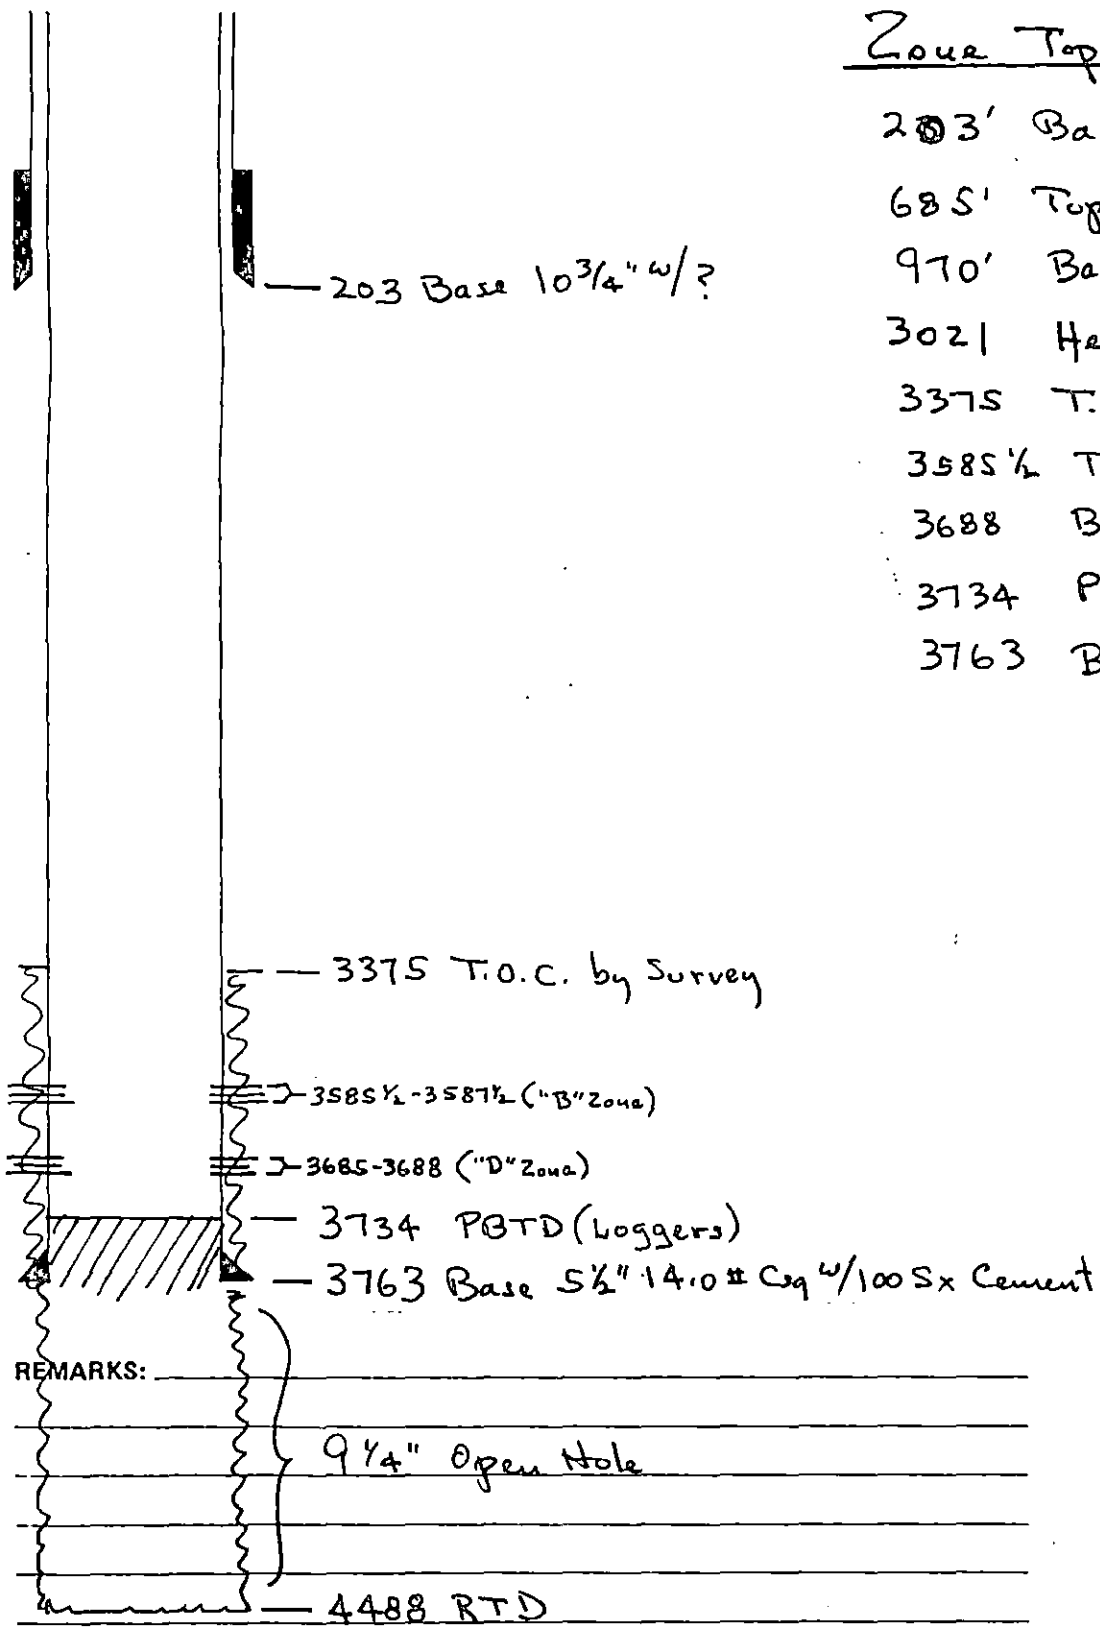 Zone Top
203' Ba
685' Top
970' Ba
3021 He
3375 T.
3585 ½ T
3688 B
3734 P
3763 B
203 Base 10 3/4" w/ ?
3375 T.O.C. by Survey
3585 ½ - 3587 ½ ("B" Zone)
3685-3688 ("D" Zone)
3734 PBTD (Loggers)
3763 Base 5½" 14.0 # Csg w/100 Sx Cement
REMARKS:
9 1/4" Open Hole
4488 RTD